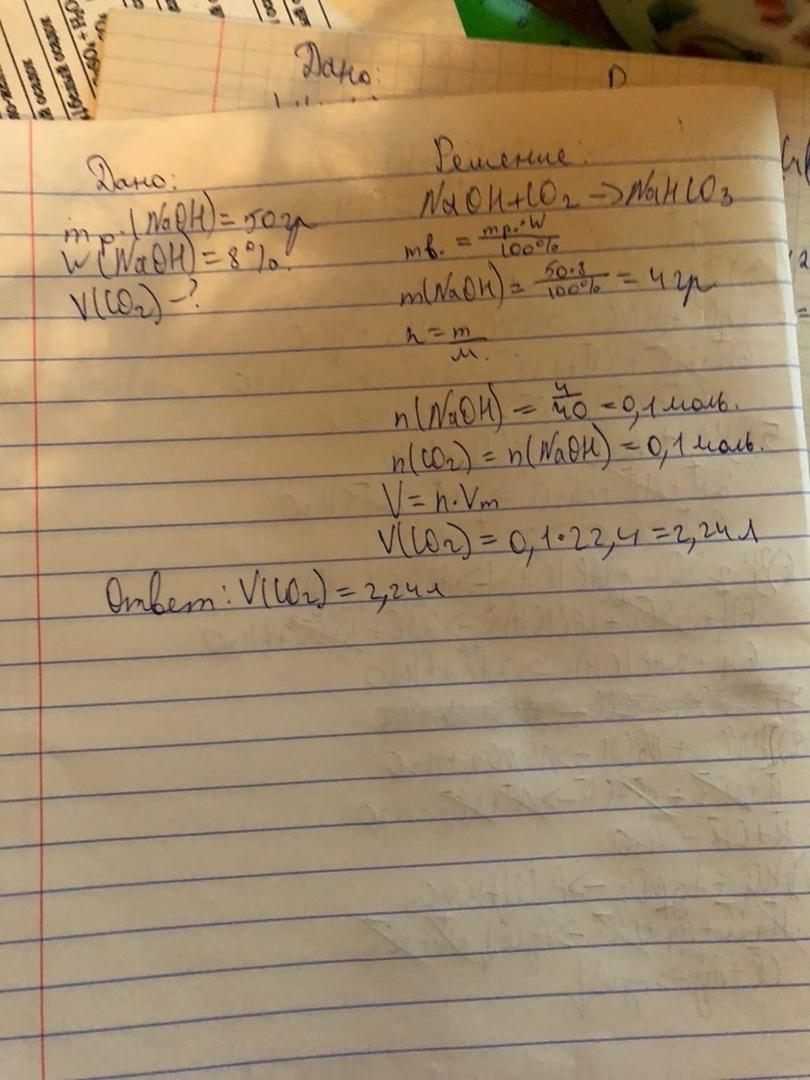 Дано:
Дано:
m р.(NaOH) = 50 гр
W (NaOH) = 8%.
V(CO2) - ?
Решение:
NaOH + CO2 -> NaHCO3
mв. = mр.·W / 100%
m(NaOH) = 50·8 / 100% = 4 гр
n = m / M.
n(NaOH) = 4 / 40 = 0,1 моль.
n(CO2) = n(NaOH) = 0,1 моль.
V = n·Vm
V(CO2) = 0,1·22,4 = 2,24 л
Ответ: V(CO2) = 2,24 л